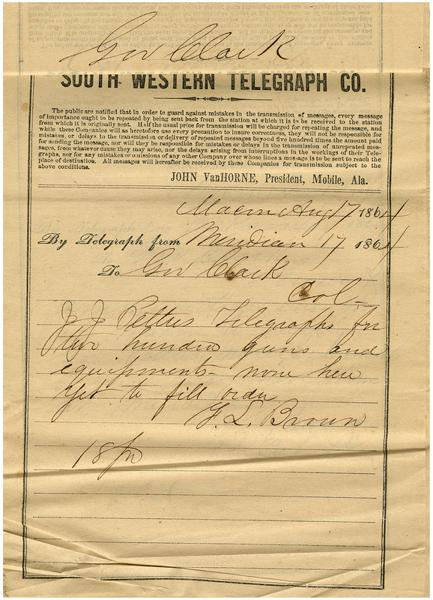 Gov Clark
SOUTH WESTERN TELEGRAPH CO.
The public are notified that in order to guard against mistakes in the transmission of messages, every message
of importance ought to be repeated by being sent back from the station at which it is to be received to the station
from which it is originally sent. Half the usual price for transmission will be charged for repeating the message, and
while these Companies will as heretofore use every precaution to insure correctness, they will not be responsible for
mistakes, or delays in the transmission or delivery of repeated messages beyond five hundred times the amount paid
for sending the message, nor will they be responsible for mistakes or delays in the transmission of unrepeated mes-
sages, from whatever cause they may arise, nor for delays arising from interruptions in the workings of their Tele-
graphs, nor for any mistakes or omissions of any other Company over whose lines a message is to be sent to reach the
place of destination. All messages will hereafter be received by these Companies for transmission subject to the
above conditions.
JOHN VanHORNE, President, Mobile, Ala.
Macon Aug 17 1864
By Telegraph from Meridian 17 1864
To Gov Clark
Col-
J J Pettus telegraphs for
two hundred guns and
equipments- none here
yet to fill order
L. Brown